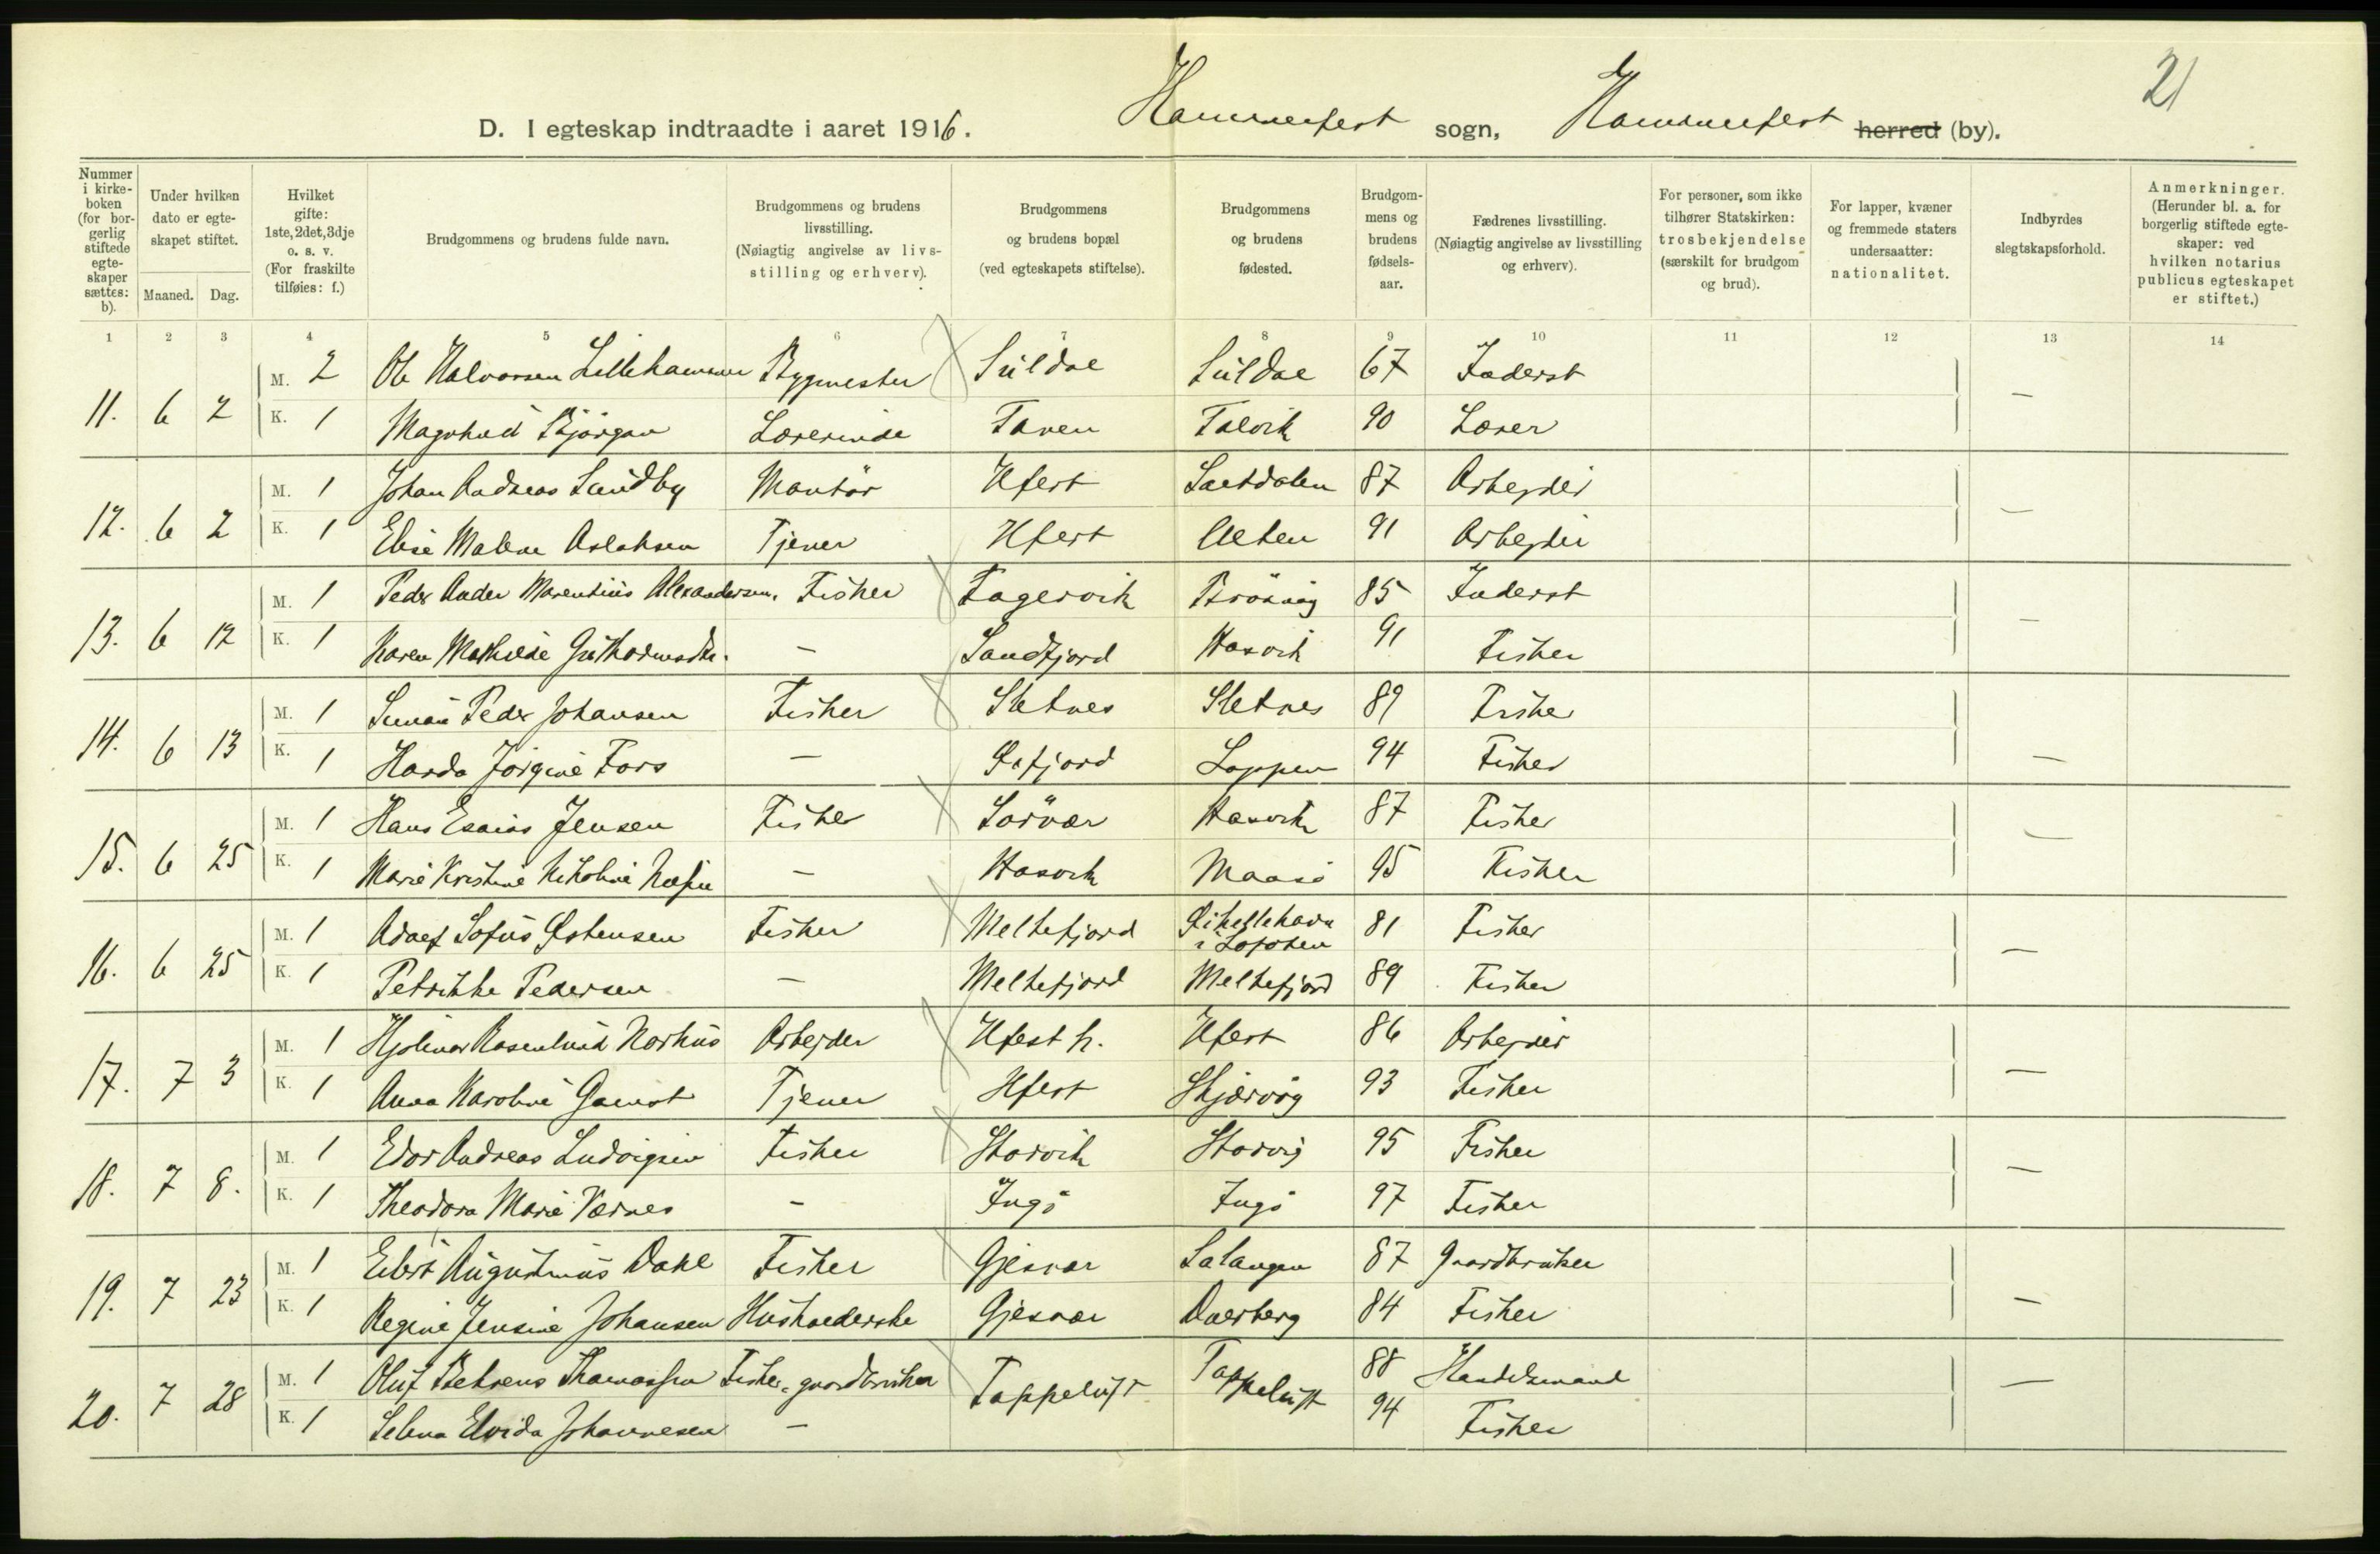 21
D. I egteskap indtraadte i aaret 1916. Hammerfest sogn, Hammerfest herred (by).
Nummer i kirke-boken (for bor-gerlig stiftede egte-skaper sættes: b).
Under hvilken dato er egte-skapet stiftet.
Maaned. Dag.
Hvilket gifte: 1ste, 2det, 3dje o. s. v. (For fraskilte tilføies: f.)
Brudgommens og brudens fulde navn.
Brudgommens og brudens livsstilling. (Nøiagtig angivelse av livs-stilling og erhverv).
Brudgommens og brudens bopæl (ved egteskapets stiftelse).
Brudgommens og brudens fødested.
Brudgom-mens og brudens fødsels-aar.
Fædrenes livsstilling. (Nøiagtig angivelse av livsstilling og erhverv).
For personer, som ikke tilhører Statskirken: trosbekjendelse (særskilt for brudgom og brud).
For lapper, kvæner og fremmede staters undersaatter: nationalitet.
Indbyrdes slegtskapsforhold.
Anmerkninger. (Herunder bl. a. for borgerlig stiftede egte-skaper: ved hvilken notarius publicus egteskapet er stiftet.)
1 2 3 4 5 6 7 8 9 10 11 12 13 14
M. 2 Ole Halvorsen Lillehammer Bygmester Suldal Suldal 67 Inderst
11. 6 2 K. 1 Magnhild Bjørgan Lærerinde Talvik 90 Lærer —
M. 1 Johan Andreas Sundby Montör Hfest Saltdalen 87 Arbejder
12. 6 2 K. 1 Elise Malene Aslaksen Tjener Hfest Alten 91 Arbejder —
M. 1 Peder Ander Marentius Alexandersen. Fisker Fagervik 85 Inderst
13. 6 12 K. 1 Karen Mathilde — Sandfjord Hasvik 91 Fisker —
M. 1 Simon Peder Johansen Fisker Sletnes Sletnes 89 Fisker
14. 6 13 K. 1 Harda Jörgine Fors — Loppen 94 Fisker —
M. 1 Hans Esaias Jensen Fisker Sörvær Hasvik 87 Fisker
15. 6 25 K. 1 Marie Kristine Nikoline — Hasvik Maasö 95 Fisker —
M. 1 Adolf Sofus Østensen Fisker Melkefjord i Lofoten 81 Fisker
16. 6 25 K. 1 Petrikke Pedersen — Melkefjord Melkefjord 89 Fisker —
M. 1 Hjalmar Rosenlund Norhus Arbejder Hfest h. Hfest 86 Arbejder
17. 7 3 K. 1 Anna Karoline Gamst Tjener Hfest Skjærvøy 93 Fisker —
M. 1 Edor Andreas Ludvigsen Fisker Storvik Storvig 95 Fisker
18. 7 8. K. 1 Theodora Marie Værnes — Ingö Ingö 97 Fisker —
M. 1 Eilert Augustinus Dahl Fisker Gjesvær Salangen 87 Gaardbruker
19. 7 23 K. 1 Regine Jensine Johansen Husholderske Gjesvær Dverberg 84 Fisker —
M. 1 Oluf Behrens Thomassen Fisker, gaardbruker Tappeluft Tappeluft 88 Handelsmand
20. 7 28 K. 1 Selma Elvida Johannesen — 94 Fisker —